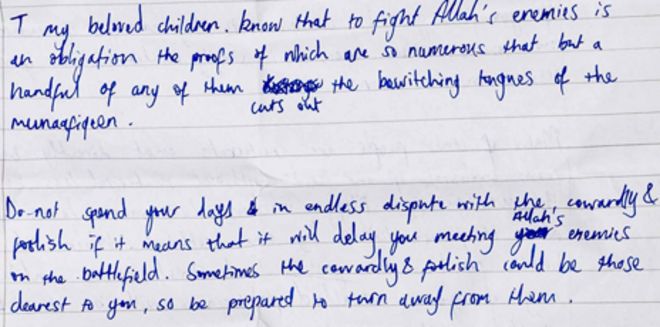 T my beloved children. know that to fight Allah's enemies is
an obligation the proofs of which are so numerous that but a
handful of any of them cuts out the bewitching tongues of the
munaafiqeen.
Do not spend your days in endless dispute with the cowardly &
foolish if it means that it will delay you meeting Allah's enemies
on the battlefield. Sometimes the cowardly & foolish could be those
dearest to you, so be prepared to turn away from them.